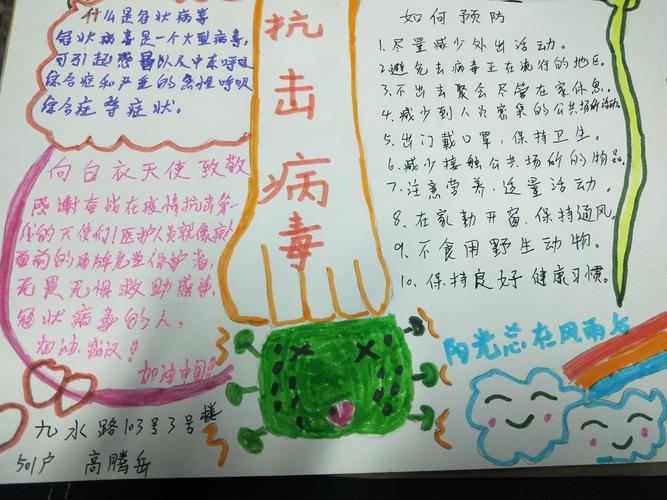 什么是冠状病毒
冠状病毒是一个大型病毒,
可引起感冒以及中东呼吸
综合症和严重的急性呼吸
综合症等症状。
向白衣天使致敬
感谢奋战在疫情抗击第一
线的天使们!医护人员就像病人
面前的盾牌免费保护者,
无畏无惧救助感染
冠状病毒的人。
加油武汉!
加油中国!
九水路103号3号楼
501户 高腾岳
抗击病毒
如何预防
1.尽量减少外出活动。
2.避免去病毒正在流行的地区。
3.不出去聚会尽管在家休息。
4.减少到人员密集的公共场所活动。
5.出门戴口罩,保持卫生。
6.减少接触公共场所的物品。
7.注意营养,适量活动。
8.在家勤开窗,保持通风。
9.不食用野生动物。
10.保持良好健康习惯。
阳光总在风雨后